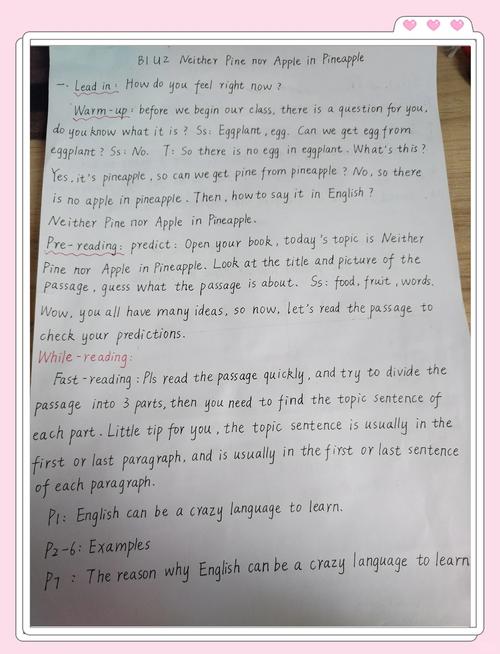 B1 U2 Neither Pine nor Apple in Pineapple
一. Lead in: How do you feel right now?
Warm-up: before we begin our class, there is a question for you,
do you know what it is? Ss: Eggplant, egg. Can we get egg from
eggplant? Ss: No. T: So there is no egg in eggplant. What's this?
Yes, it's pineapple, so can we get pine from pineapple? No, so there
is no apple in pineapple. Then, how to say it in English?
Neither Pine nor Apple in Pineapple.
Pre-reading: predict: Open your book, today's topic is Neither
Pine nor Apple in Pineapple. Look at the title and picture of the
passage, guess what the passage is about. Ss: food, fruit, words.
Wow, you all have many ideas, so now, let's read the passage to
check your predictions.
While-reading:
Fast-reading: Pls read the passage quickly, and try to divide the
passage into 3 parts, then you need to find the topic sentence of
each part. Little tip for you, the topic sentence is usually in the
first or last paragraph, and is usually in the first or last sentence
of each paragraph.
P1: English can be a crazy language to learn.
P2-6: Examples
P7: The reason why English can be a crazy language to learn